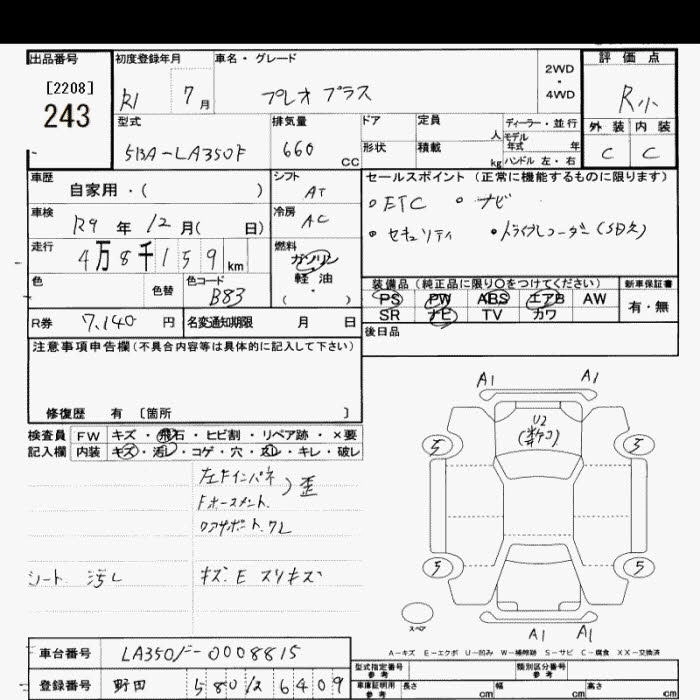 出品番号 初度登録年月 車名・グレード 2WD・4WD 評価点
[2208]
243 R1 7月 プレオ プラス R小
型式 排気量 ドア 定員 人 ディーラー・並行 外装 内装
モデル年式 年
5BA-LA350F 660 CC 形状 積載 kg ハンドル 左・右 C C
車歴 自家用・( ) シフト AT セールスポイント (正常に機能するものに限ります)
車検 R9年 12月( 日) 冷房 AC ・ETC ・ナビ
走行 4万8千159km 燃料 ガソリン・軽油・( ) ・セキュリティ ・ドライブレコーダー(SD欠)
色 色替 色コード B83 装備品 (純正品に限り○をつけてください) 新車保証書
PS PW ABS エアB AW 有・無
R券 7,140円 名変通知期限 月 日 SR ナビ TV カワ
後日品
注意事項申告欄 (不具合内容等は具体的に記入して下さい)
修復歴 有 〔箇所 〕
検査員記入欄 FW キズ・飛石・ヒビ割・リペア跡・×要
内装 キズ・汚レ・コゲ・穴・スレ・キレ・破レ
左Fインパネ
Fホースメント.
)歪
コアサポート. ワレ
シート 汚レ キズ E スリキズ
A1 A1
U2
5 5
5 5
スペア A1 A1
A-キズ E-エクボ U-凹み W-補修跡 S-サビ C-腐食 XX-交換済
車台番号 LA350F-0008815
型式指定番号 参考 類別区分番号 参考
登録番号 野田 580 12 6409
車庫証明用 参考 長さ cm 幅 cm 高さ cm